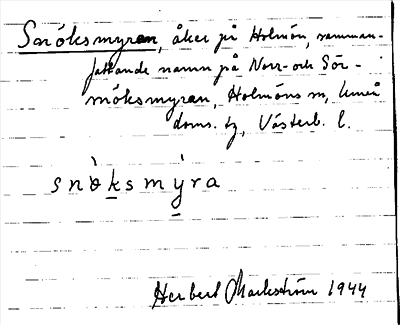 Snöksmyran, åker på Holmön, samman-
fattande namn på Norr- och Sör-
snöksmyran, Holmöns sn, Umeå
doms. tg, Västerb. l.
snø̀ksmýra
Herbert Markström 1944